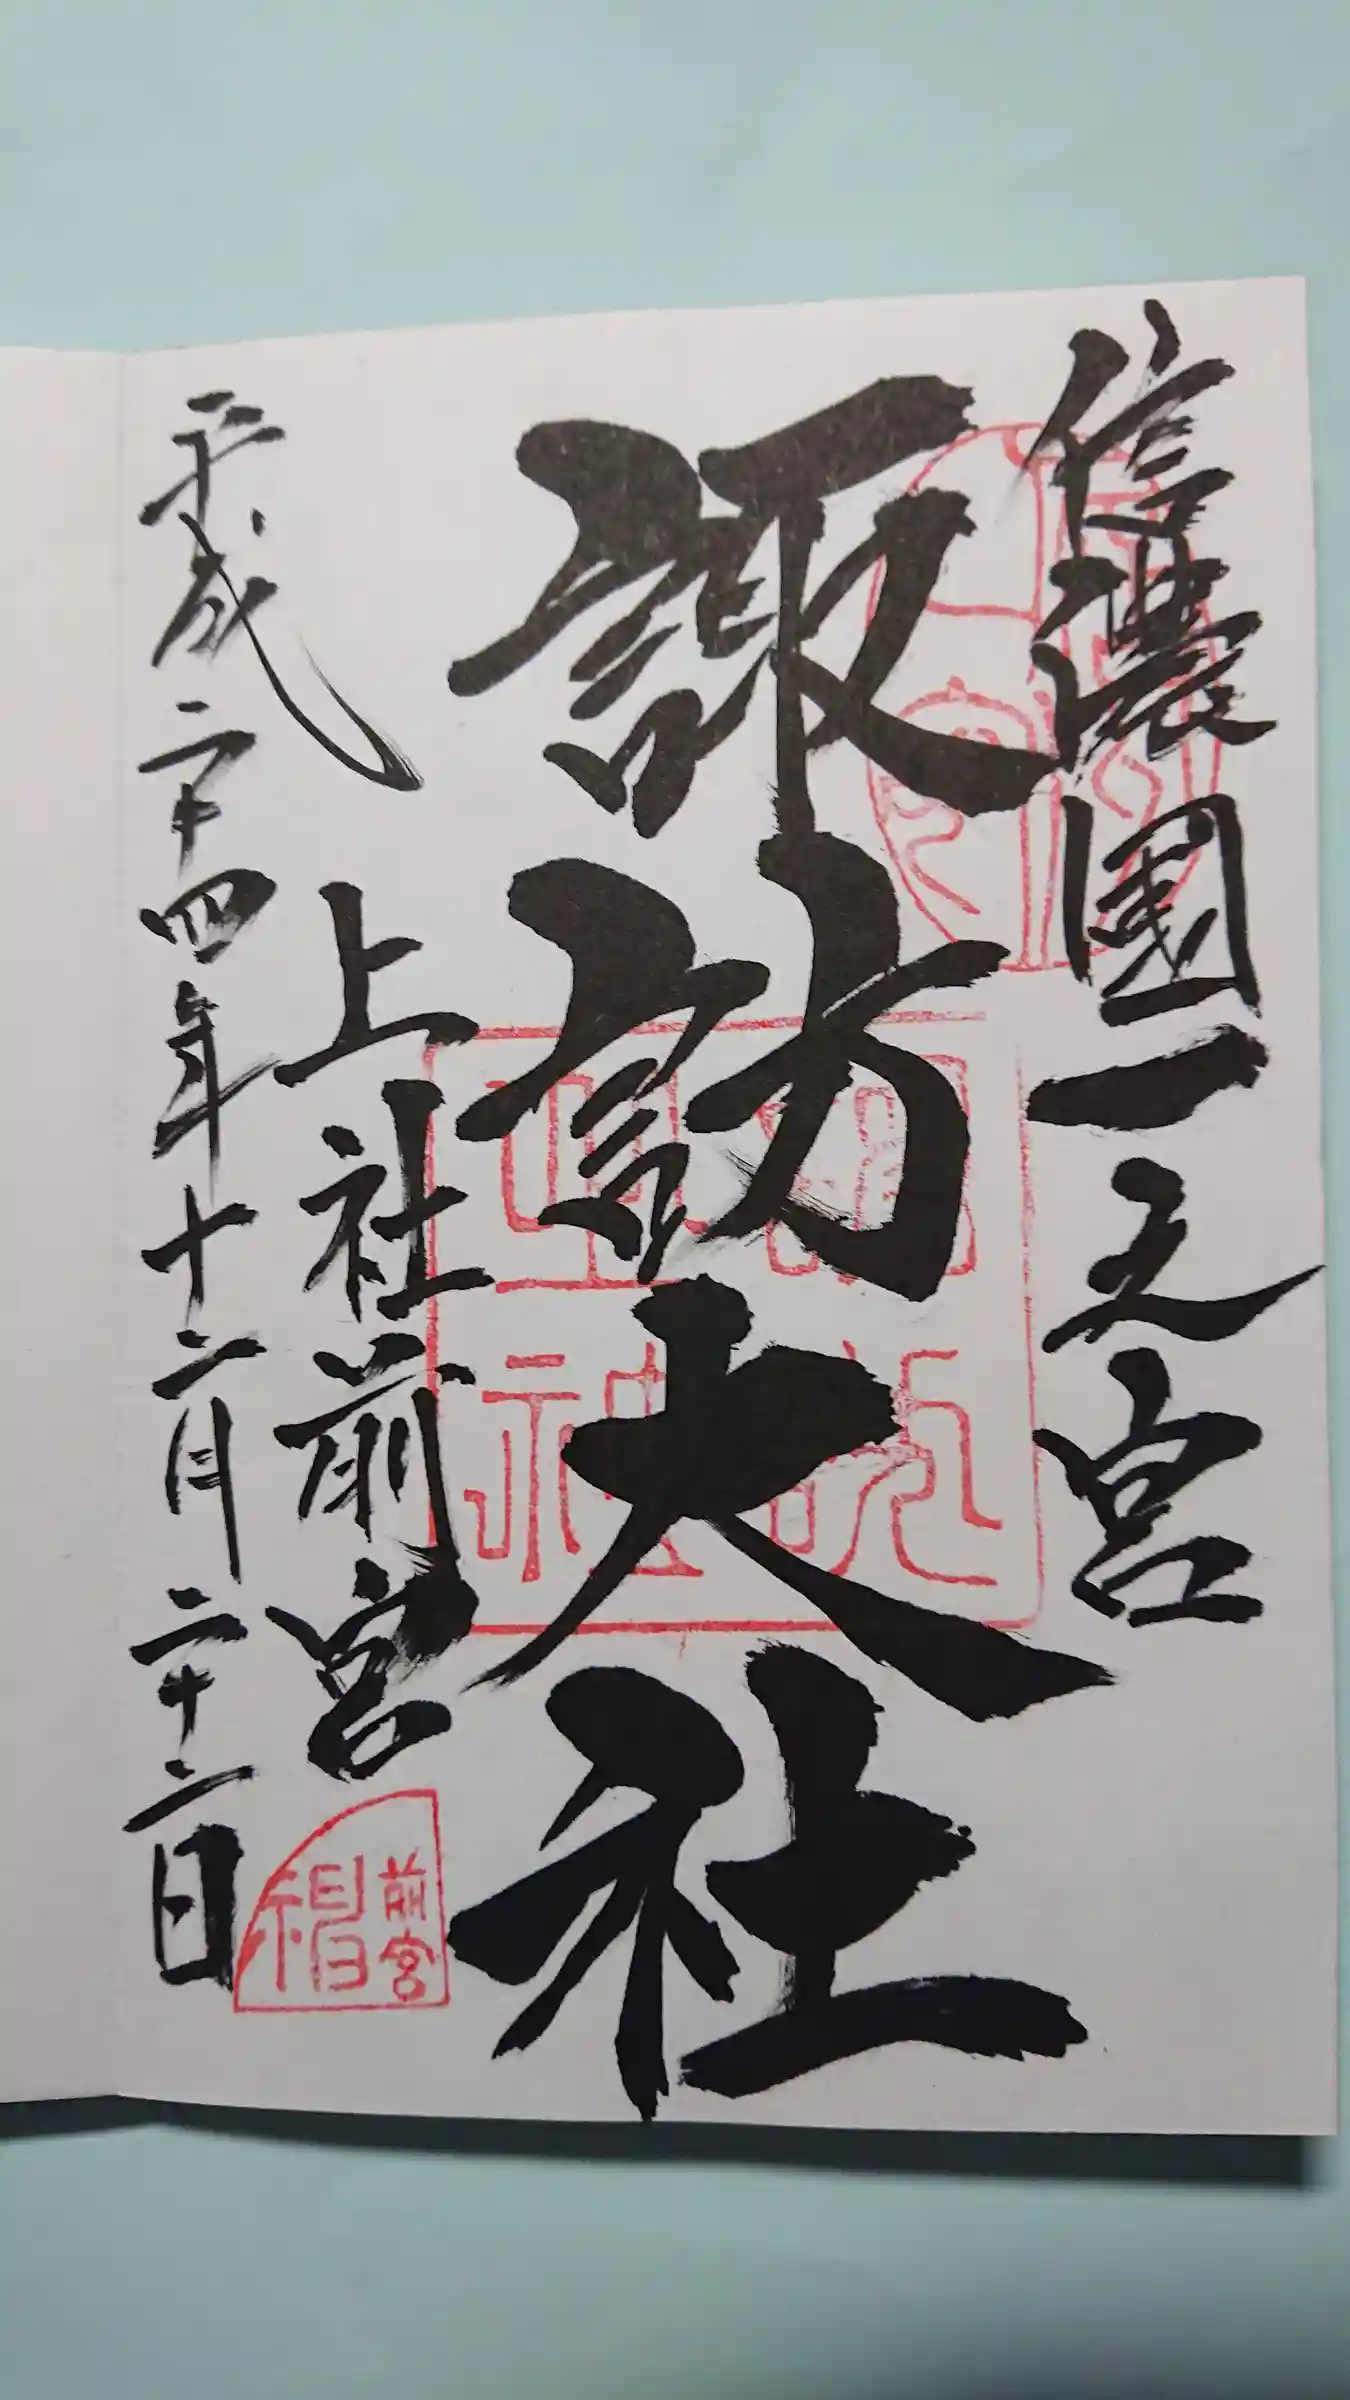 信濃國一之宮
諏訪大社
上社前宮
平成二十四年十二月二十二日
前宮